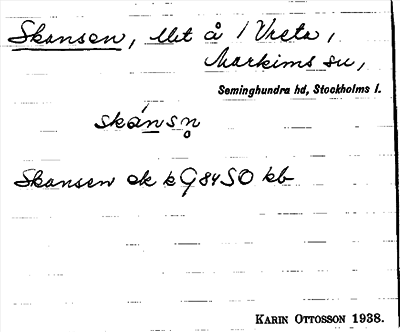 Skansen, litet å / Vreta,
Markims sn,
Seminghundra hd, Stockholms l.
skánsn̥
Skansen ek k G 84 SO kb
KARIN OTTOSSON 1938.